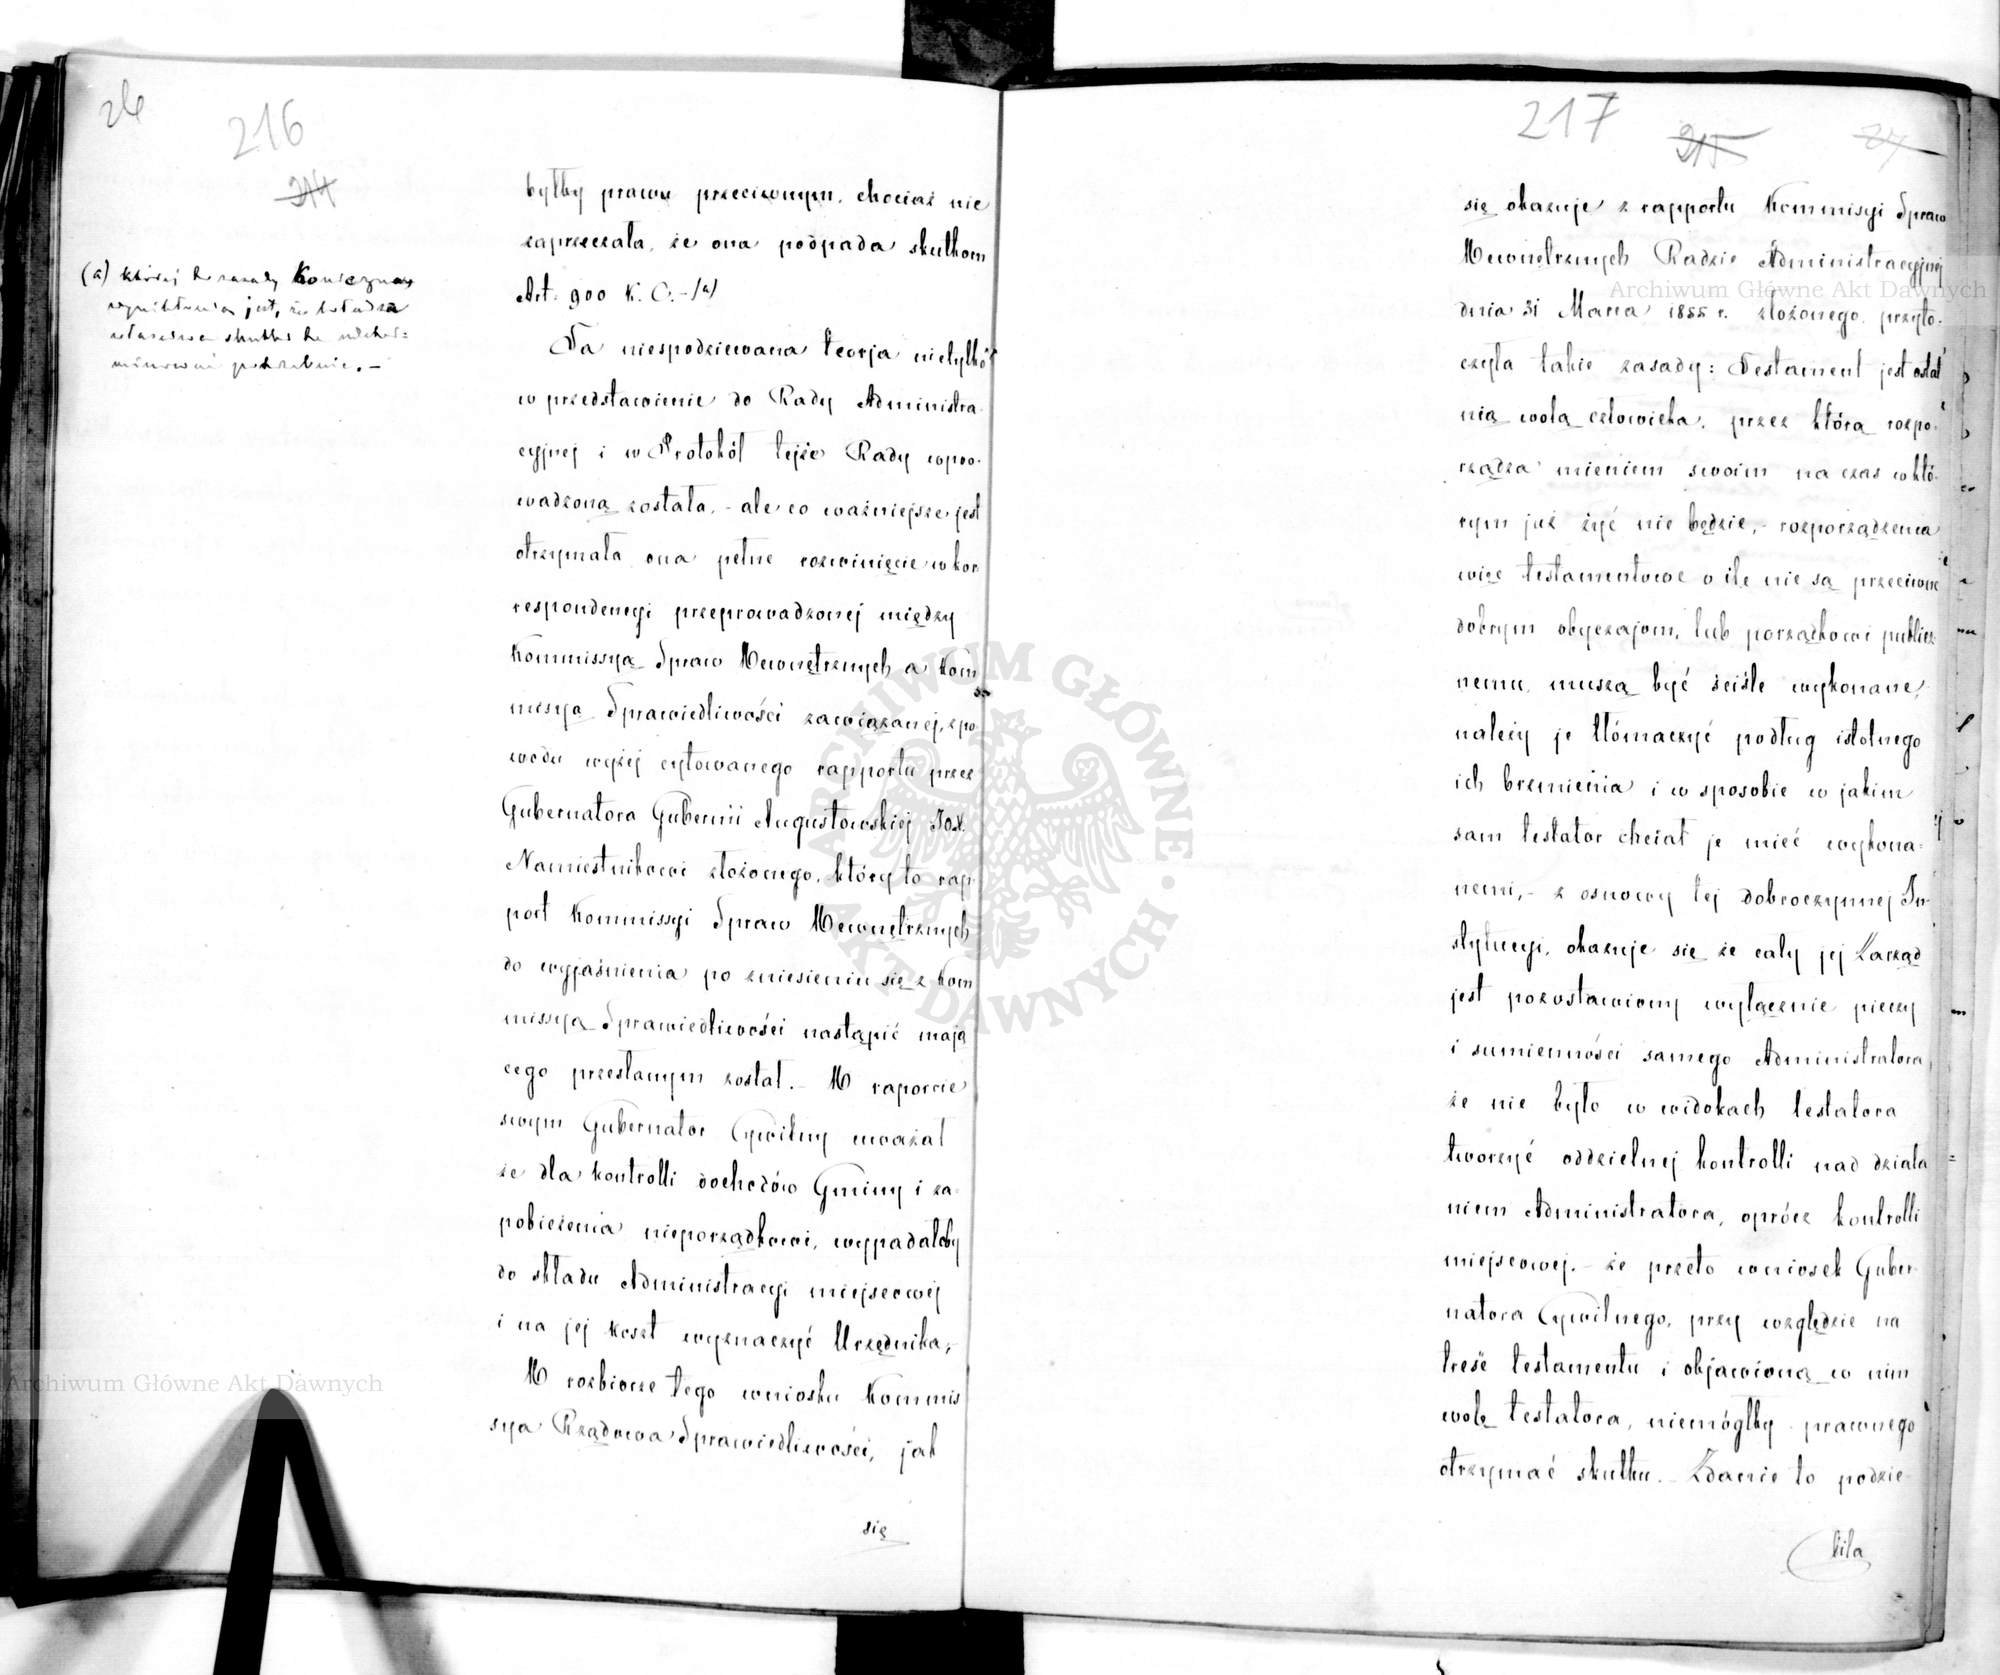 26
216
214
byłby prawu przeciwnym, chociaż nie
zaprzeczała, że ona podpada skutkom
Art: 900 K. C. - (a)
(a) której to zasady Konieczną
wyniktością jest, że władza
właściwa skutki te
potrzebuie. -
Ta niespodziewana teorja nietylko
w przedstawienie do Rady Administra-
cyjnej i w Protokół tejże Rady wpro-
wadzoną została, - ale co ważniejsze jest
otrzymała ona pełne rozwinięcie w kor
respondencyi przeprowadzonej między
Kommissyą Spraw Wewnętrznych a Kom
misyą Sprawiedliwości zawiązanej, z po-
wodu wyżej cytowanego rapportu przez
Gubernatora Gubernii Augustowskiej JOX.
Namiestnikowi złożonego, który to rap-
port Kommissyi Spraw Wewnętrznych
do wyjaśnienia po zniesieniu się z Kom
missyą Sprawiedliwości nastąpić mają
cego przesłanym został. - W raporcie
swym Gubernator Cywilny uważał
że dla kontrolli dochodów Gminy i za-
pobieżenia nieporządkowi, wypadałoby
do składu Administracyi miejscowej
i na jej koszt wyznaczyć Urzędnika,
W rozbiorze tego wniosku Kommis
sya Rządowa Sprawiedliwości, jak
się
217
215
27
się okazuje z rapportu Kommisyi Spraw
Wewnętrznych Radzie Administracyjnej
dnia 31 Marca 1855 r. złożonego, przyto-
czyła takie zasady: Testament jest ostat
nią wolą człowieka, przez którą rozpo-
rządza mieniem swoim na czas w któ-
rym już żyć nie będzie, - rozporządzenia
więc testamentowe o ile nie są przeciwne
dobrym obyczajom, lub porządkowi publicz
nemu, muszą być ściśle wykonane,
należy je tłómaczyć podług istotnego
ich brzmienia i w sposobie w jakim
sam testator chciał je mieć wykona-
nemi, - z osnowy tej dobroczynnej In-
stytucyi, okazuje się że cały jej Zarząd
jest pozostawiony wyłącznie pieczy
i sumienności samego Administratora,
że nie było w widokach testatora
tworzyć oddzielnej kontrolli nad działa
niem Administratora, oprócz kontrolli
miejscowej. - że przeto wniosek Guber-
natora Cywilnego, przy względzie na
treść testamentu i objawioną w nim
wolę testatora, niemógłby prawnego
otrzymać skutku. - Zdanie to podzie-
liła
Archiwum Główne Akt Dawnych
Archiwum Główne Akt Dawnych
ARCHIWUM GŁÓWNE AKT DAWNYCH